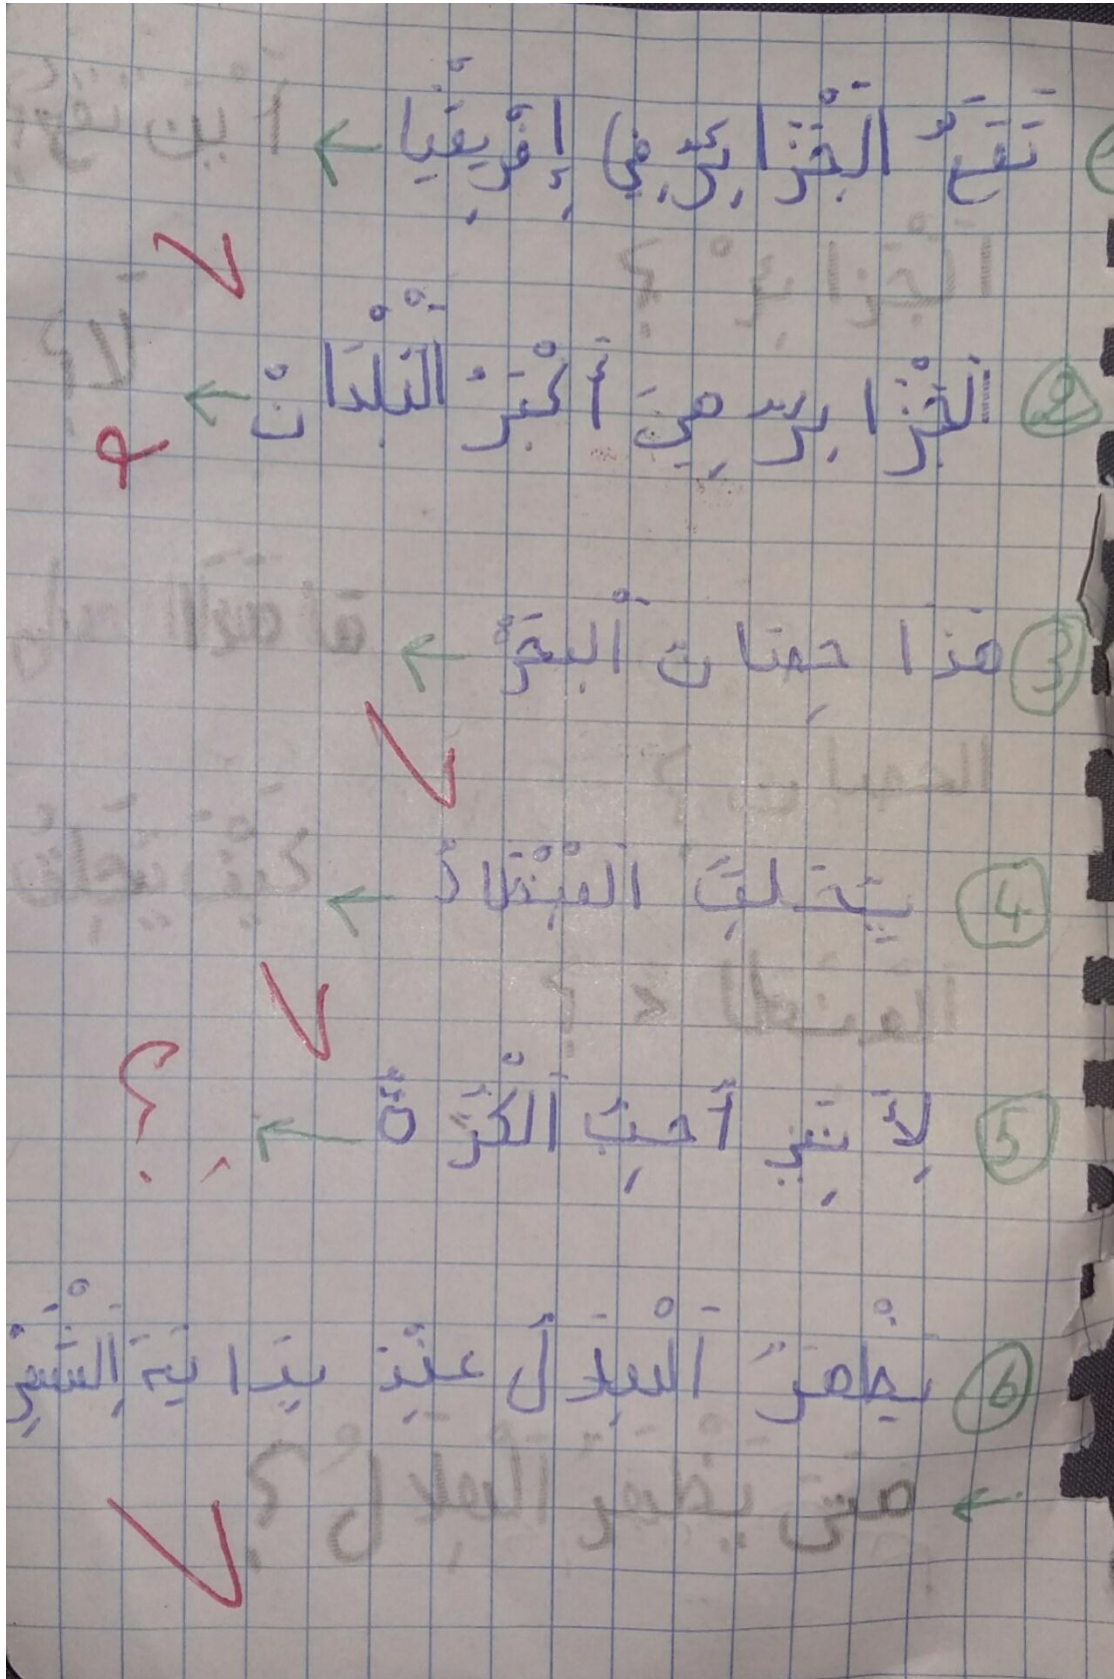 تَقَعُ الْجَزَائِرُ فِي إِفْرِيقْيَا ← أَيْنَ تَقَعُ
اَلْجَزَائِرْ ؟
② اَلْجَزَائِرُ هِيَ أَكْبَرُ الْبُلْدَانْ ← لَا؟
③ هَذا حِصَان الْبَحْرْ ← مَا هَذَا
الحصان ؟
④ يَتَحَلقُ الْمِنْطَادُ ← كَيْفَ يَتَحلِقُ
المنطاد ؟
⑤ لِأَنَنِي أُحِبُ اَلْكُرَةُ ← ؟
⑥ يظْهَرُ اَلْهِلَالُ عِنْدَ بِدَايَةِ الشَّهْرِ
← متى يَظْهَرُ اَلْهِلَالُ ؟